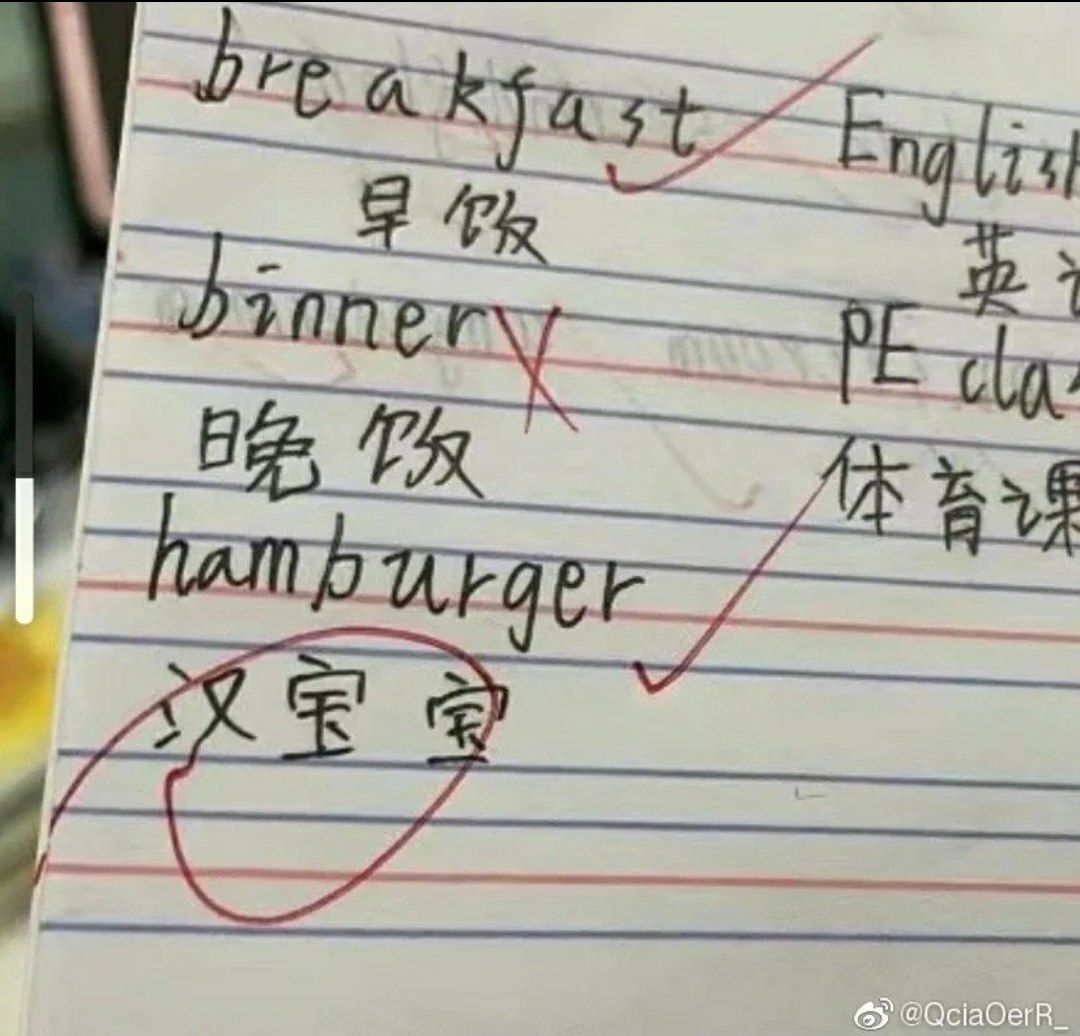 breakfast
早饭
binner
晚饭
hamburger
汉宝宝
English
英
PE cla
体育课
@QciaOerR_